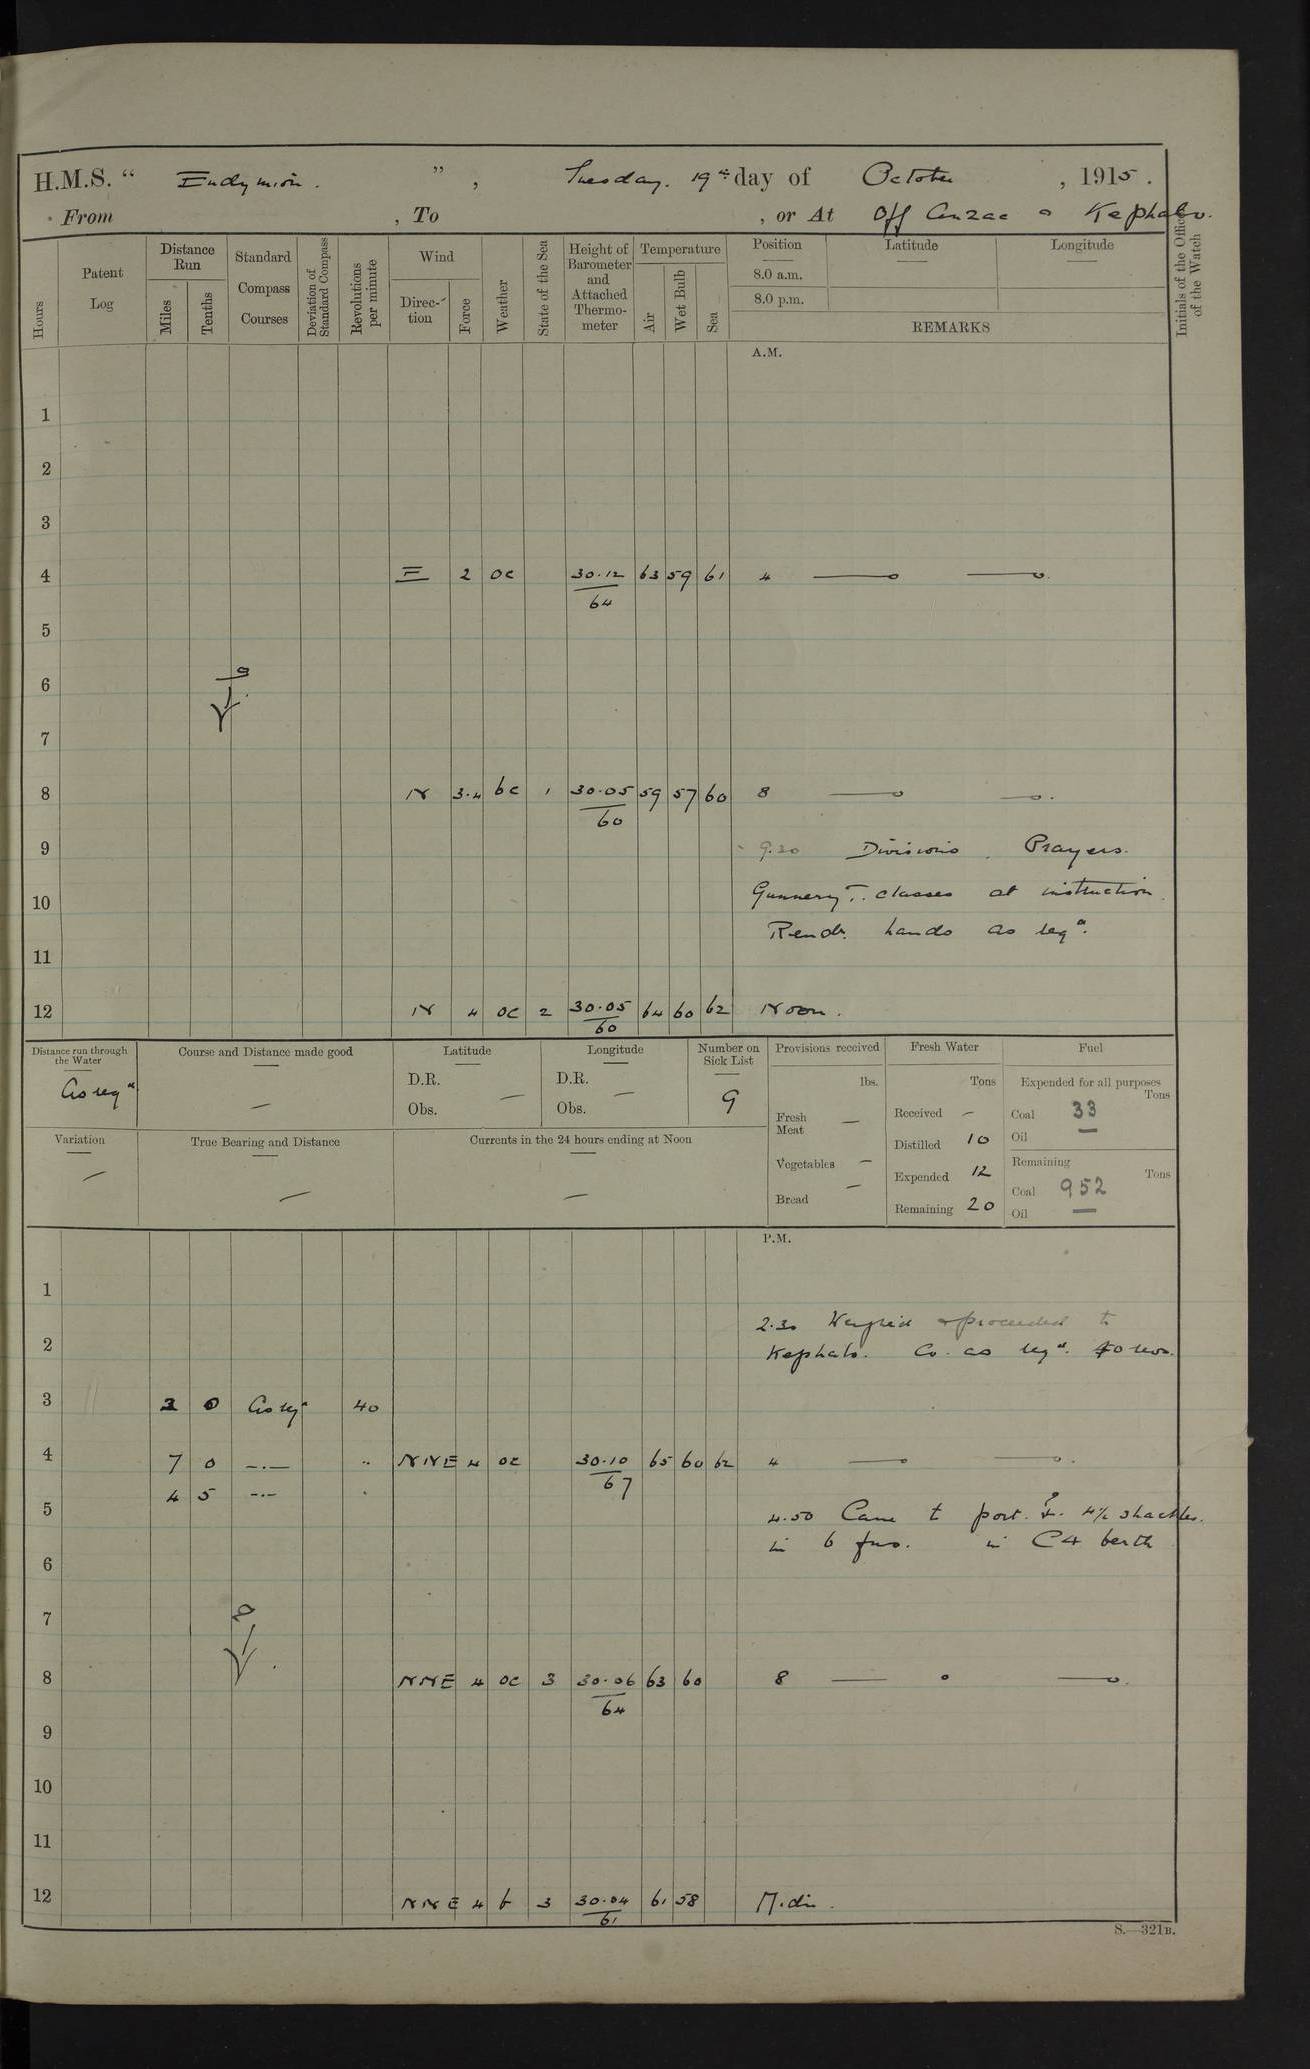 H.M.S. “ Endymion. ” , Tuesday. 19th day of October , 1915.
From , To , or At Off Anzac & Kephalo.
Hours
Patent Log
Distance Run
Miles
Tenths
Standard Compass Courses
Deviation of Standard Compass
Revolutions per minute
Wind
Direction
Force
Weather
State of the Sea
Height of Barometer and Attached Thermometer
Temperature
Air
Wet Bulb
Sea
Position
8.0 a.m.
8.0 p.m.
Latitude
Longitude
REMARKS
Initials of the Officer of the Watch
A.M.
1
2
3
4 E 2 oc 30.12 63 59 61 4
64
5
6
7
8 N 3.4 bc 1 30.05 59 57 60 8
60
9 9.20 Divisions. Prayers.
10 Gunnery T. classes at instruction.
Remdr. hands as reqd.
11
12 N 4 oc 2 30.05 64 60 62 Noon.
60
Distance run through the Water
As reqd
Course and Distance made good
—
Latitude
D.R. —
Obs.
Longitude
D.R. —
Obs.
Number on Sick List
9
Provisions received
lbs.
Fresh Meat —
Vegetables —
Bread —
Fresh Water
Tons
Received —
Distilled 10
Expended 12
Remaining 20
Fuel
Expended for all purposes
Tons
Coal 33
Oil —
Remaining
Tons
Coal 952
Oil —
Variation
—
True Bearing and Distance
—
Currents in the 24 hours ending at Noon
—
P.M.
1
2.30 Weighed & proceeded to
2 Kephalo. Co. as reqd. 40 revs.
3 3 0 As reqd 40
4 7 0 —.— " NNE 4 oc 30.10 65 60 62 4
67
4 5 —.— "
5 4.50 Came to port. 4½ shackles.
in 6 fms. in C4 berth
6
7
8 NNE 4 oc 3 30.06 63 60 8
64
9
10
11
12 NNE 4 b 3 30.04 61 58 Midn.
61
S.—321B.